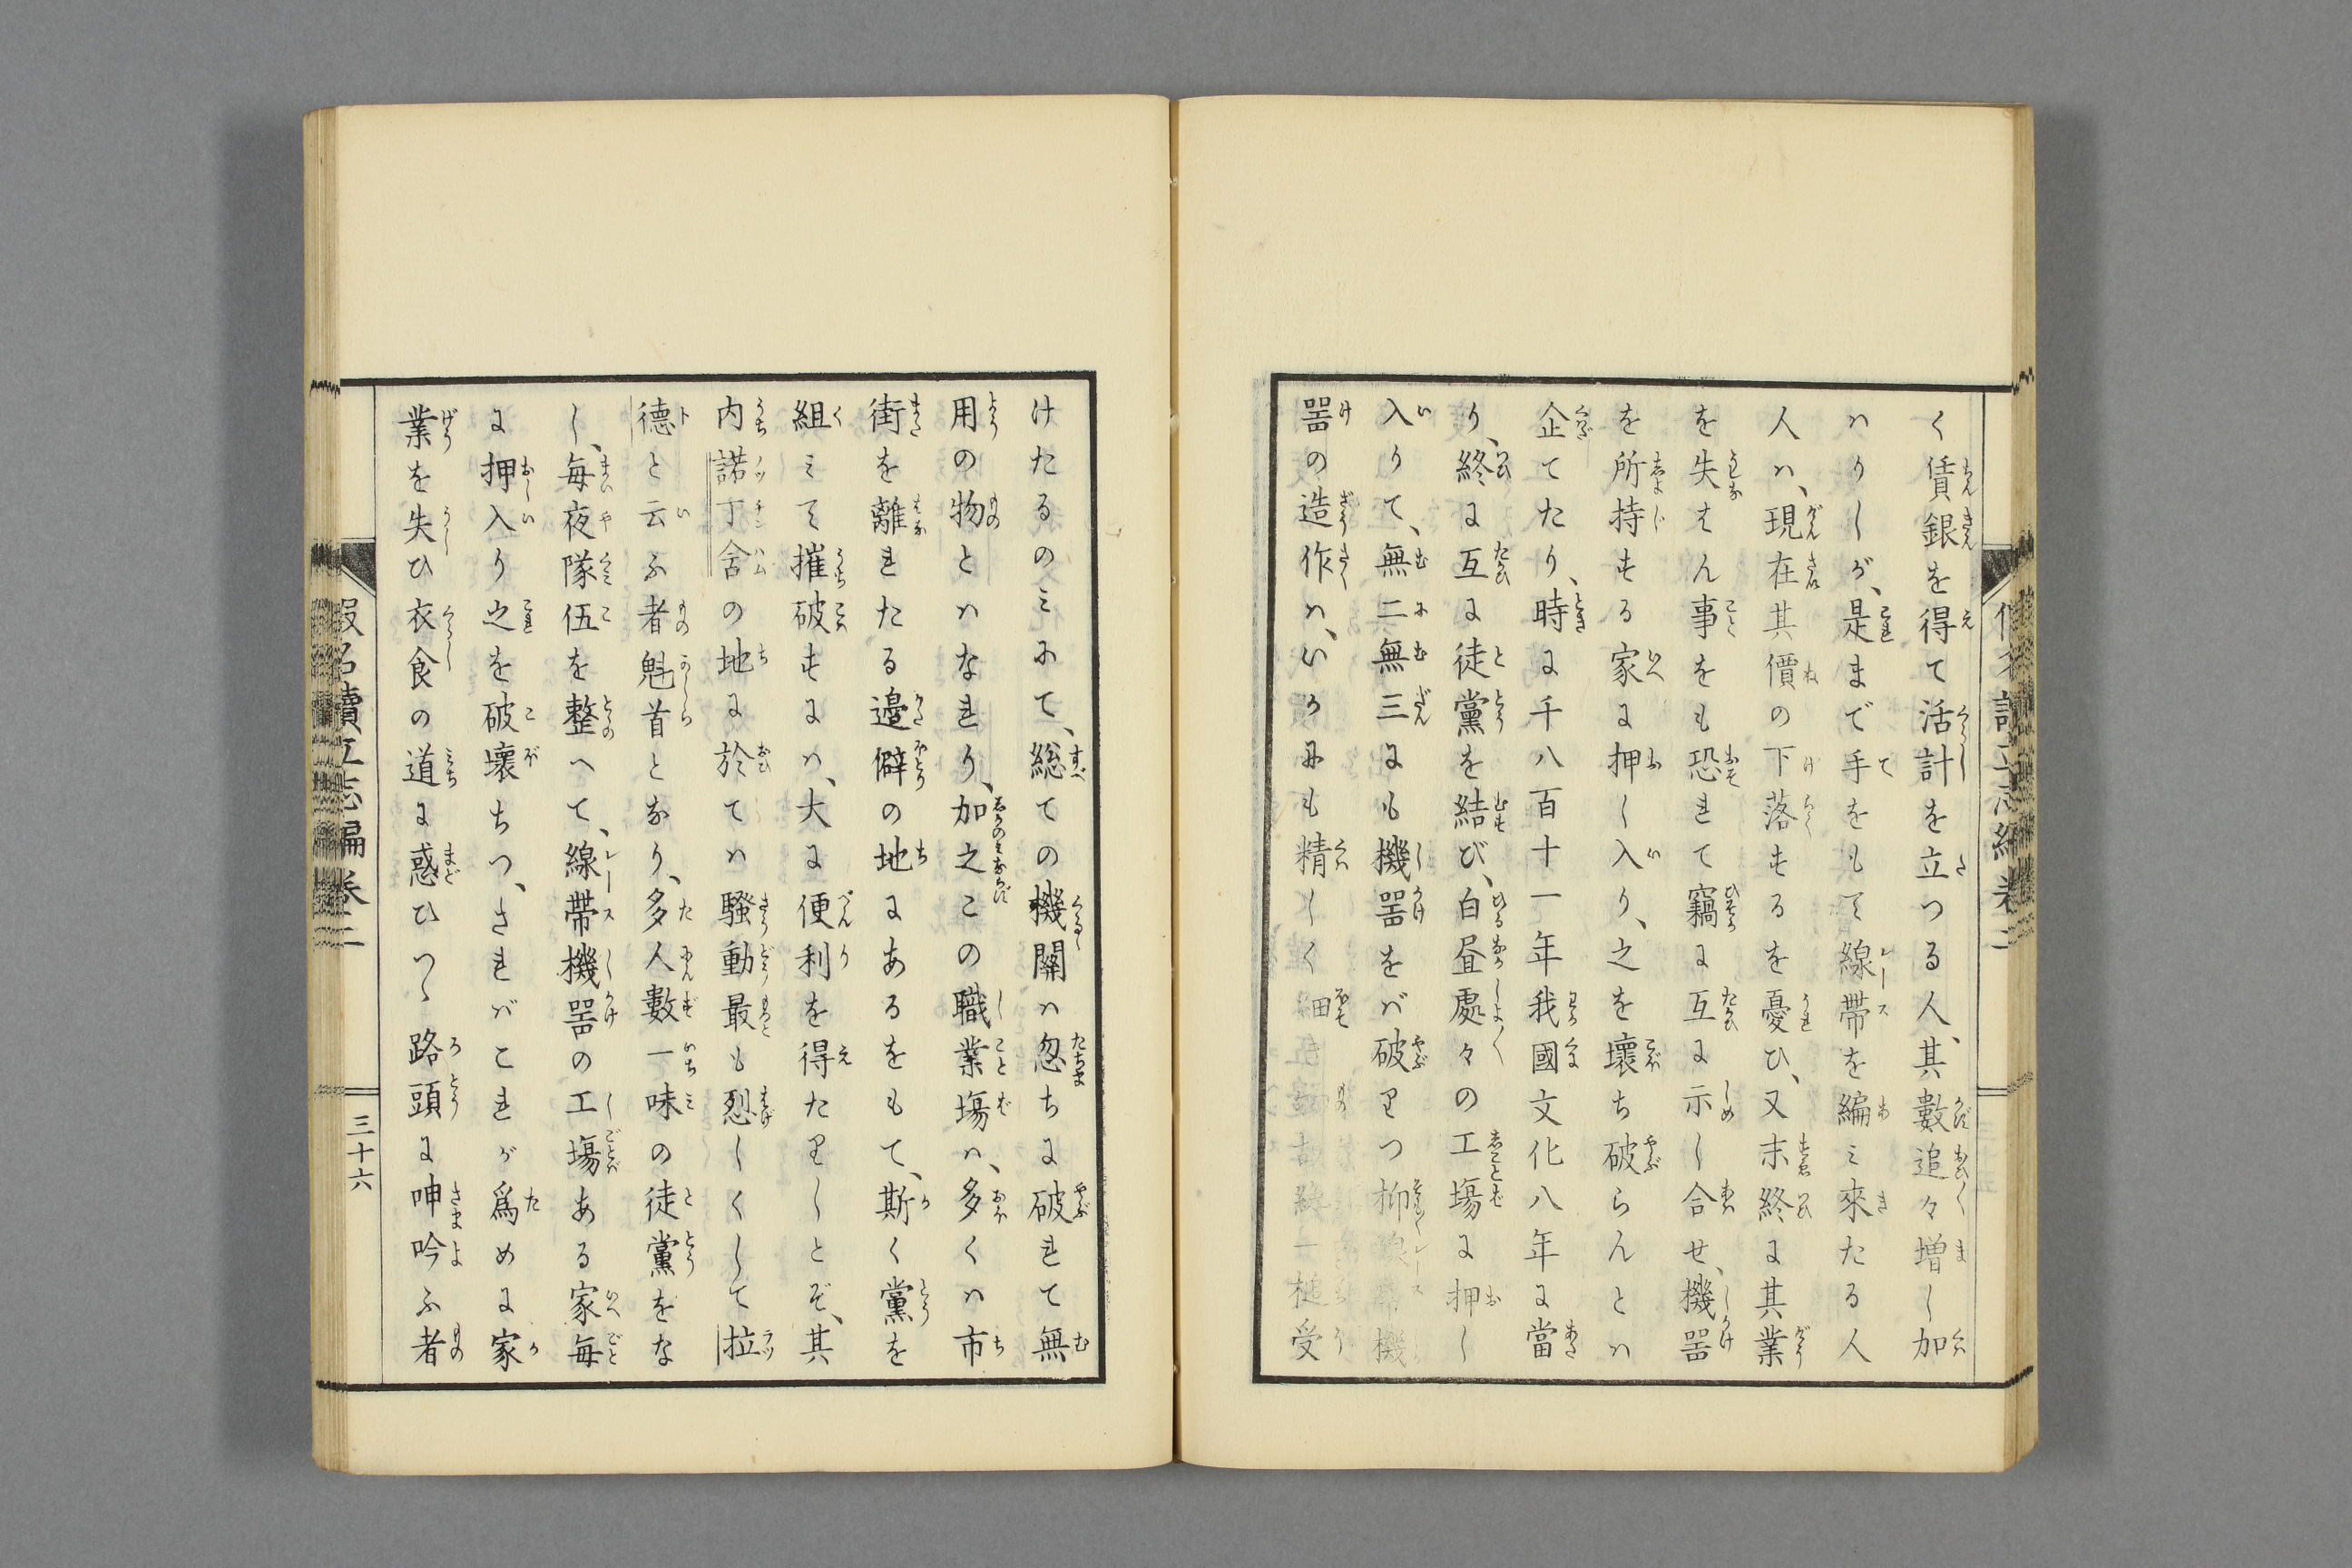 く賃銀を得て活計を立つる人、其數追々増し加
ハりしが、是まで手をもて線帯を編ミ來たる人
人ハ、現在其價の下落するを憂ひ、又末終に其業
を失はん事をも恐れて竊に互に示し合せ、機噐
を所持する家に押し入り、之を壞ち破らんとハ
企てたり、時に千八百十一年我國文化八年に當
り、終に互に徒黨を結び、白昼處々の工塲に押し
入りて、無二無三にも機噐をバ破りつ抑線帯機
噐の造作ハ、いかにも精しく細 一槌受
けたるのミにて、総ての機關ハ忽ちに破れて無
用の物とハなれり、加之この職業塲ハ、多くハ市
街を離れたる邉僻の地にあるをもて、斯く黨を
組ミて摧破するにハ、大に便利を得たりしとぞ、其
内諾丁舎の地に於てハ騷動最も烈しくして拉
德と云ふ者魁首となり、多人數一味の徒黨をな
し、毎夜隊伍を整へて、線帯機噐の工塲ある家毎
に押入り之を破壞ちつ、されバこれが爲めに家
業を失ひ衣食の道に惑ひつゝ路頭に呻吟ふ者
假名讀立志編 巻二
三十六